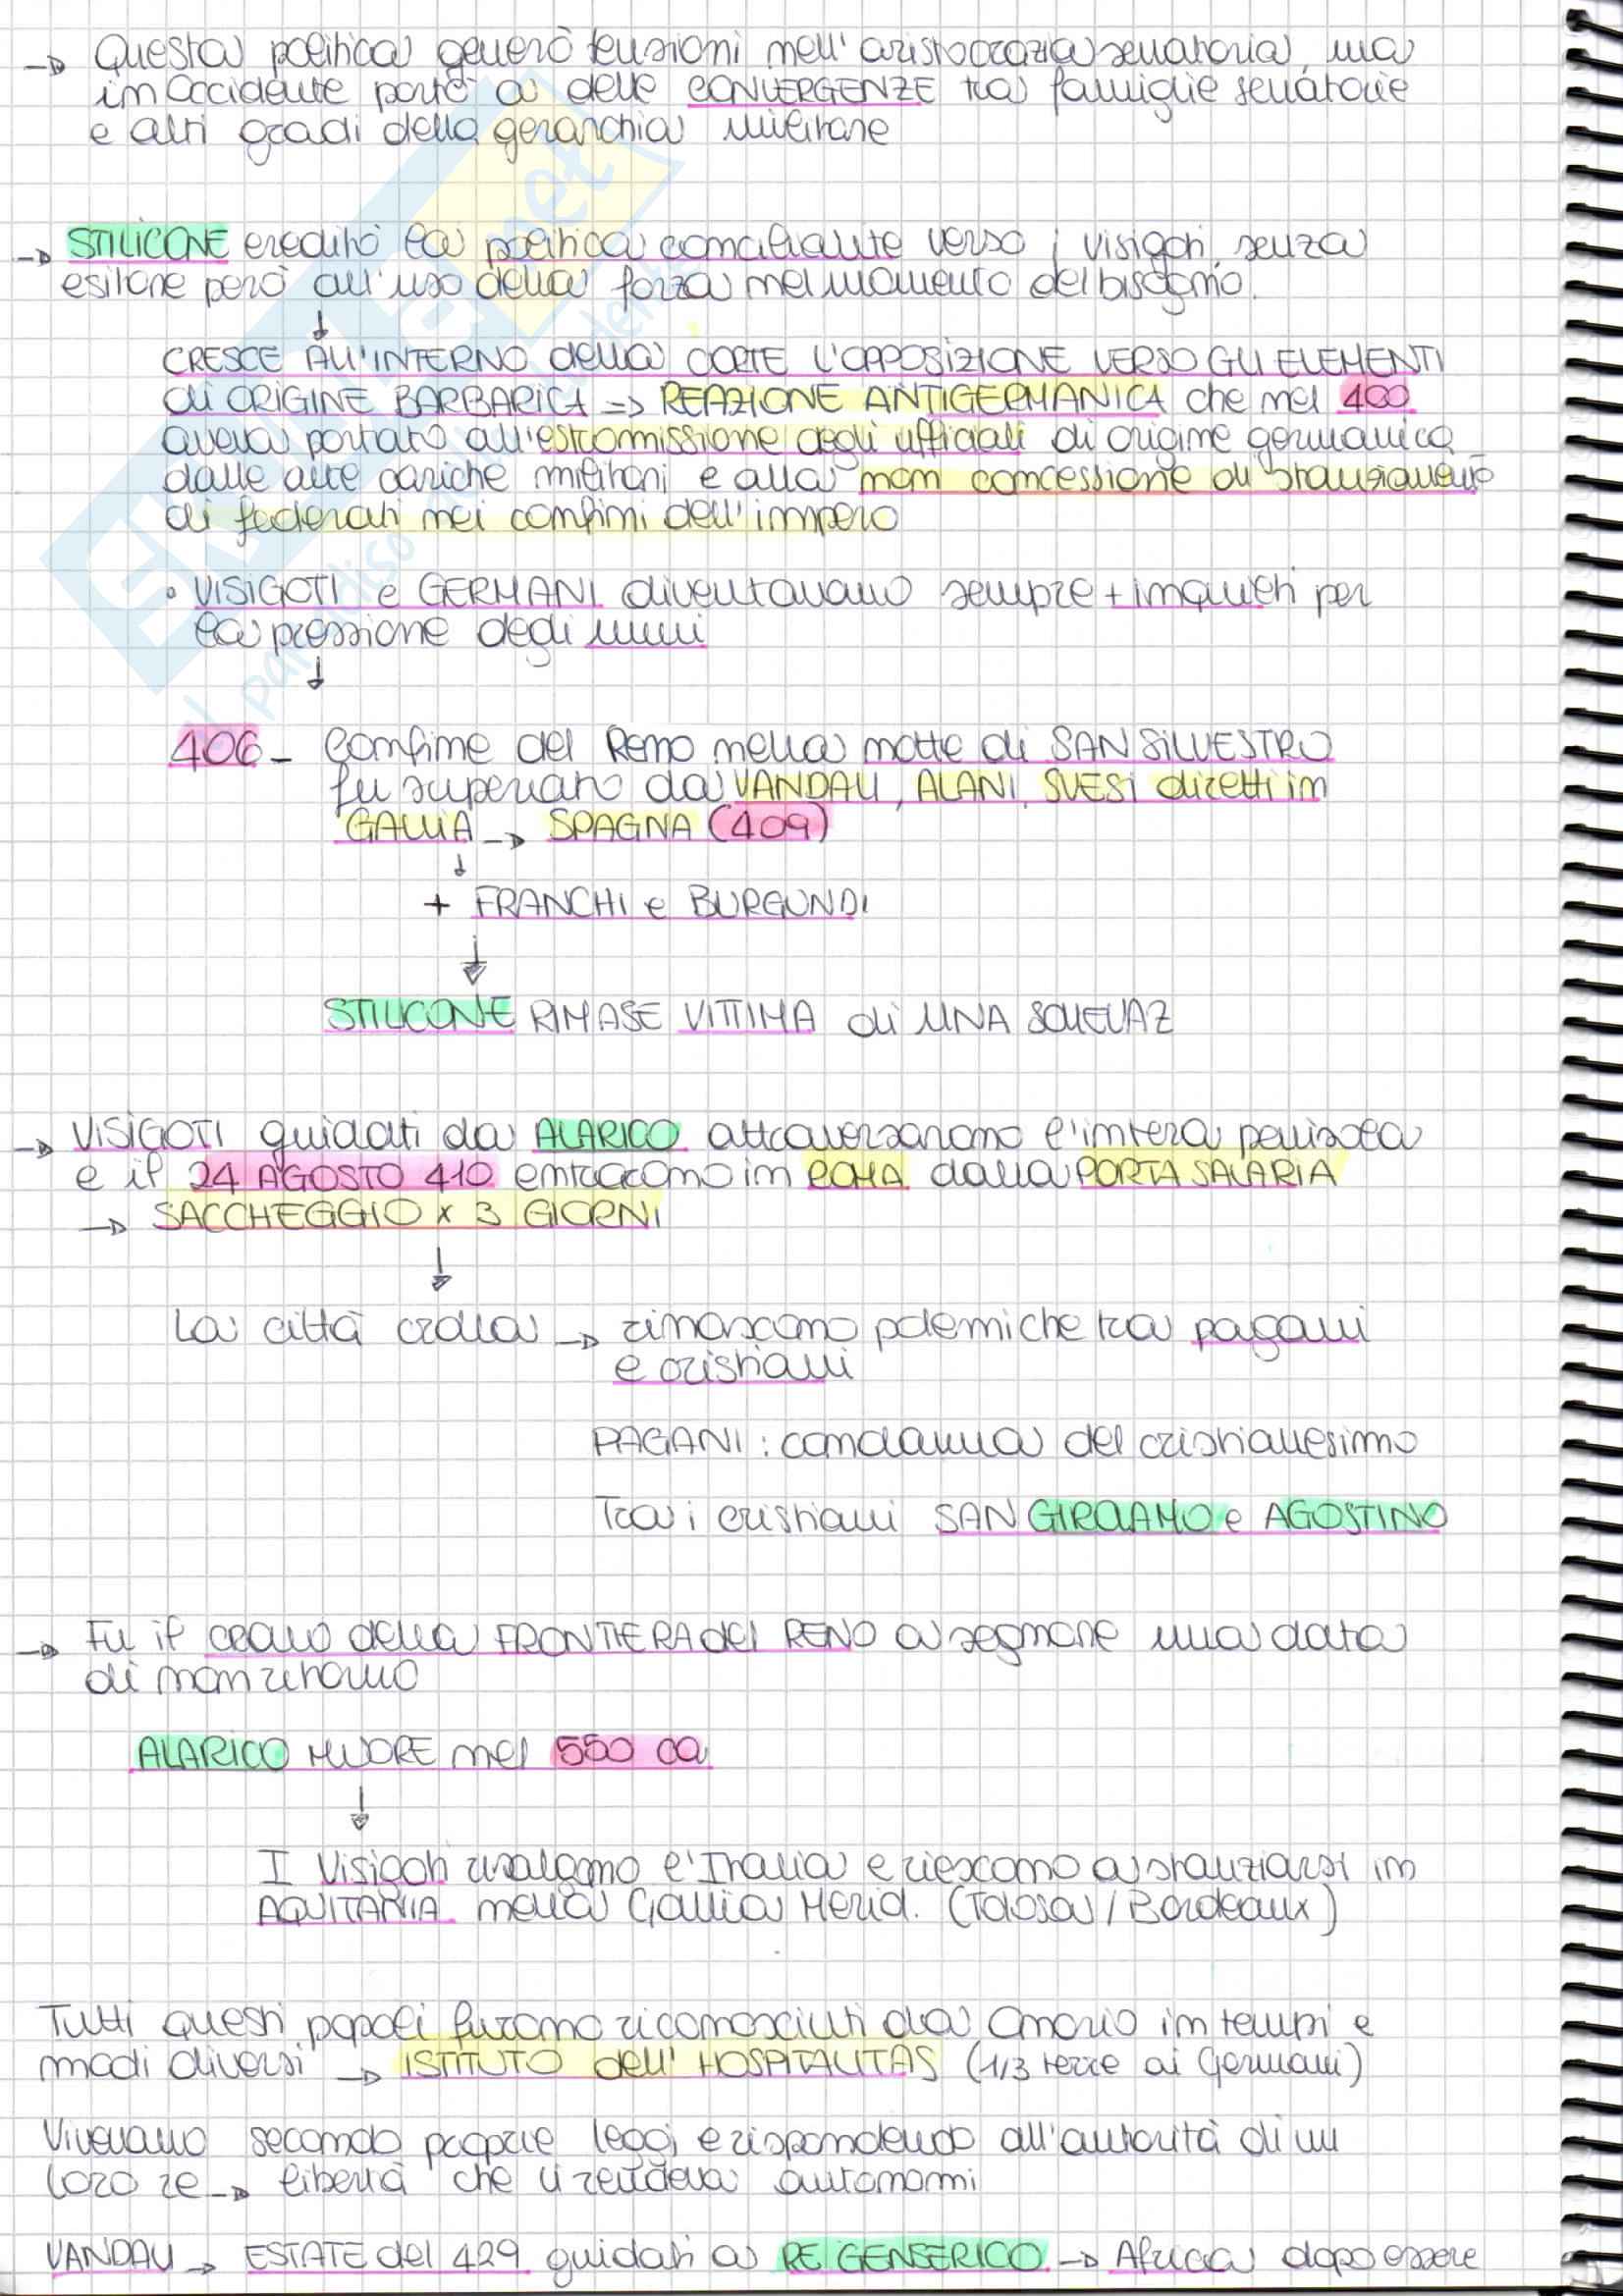 → Questa politica generò tensioni nell'aristocrazia senatoria, ma
in Occidente portò a delle CONVERGENZE tra famiglie senatorie
e alti gradi della gerarchia militare
→ STILICONE ereditò la politica conciliante verso i visigoti, senza
esitare però all'uso della forza nel momento del bisogno.
↓
CRESCE ALL'INTERNO della CORTE L'OPPOSIZIONE VERSO GLI ELEMENTI
di ORIGINE BARBARICA => REAZIONE ANTIGERMANICA che nel 400
aveva portato all'estromissione degli ufficiali di origine germanica
dalle alte cariche militari e alla non concessione di stanziamento
di federati nei confini dell'impero
• VISIGOTI e GERMANI diventavano sempre + inquieti per
la pressione degli unni
↓
406 - Confine del Reno nella notte di SAN SILVESTRO
fu superato da VANDALI, ALANI, SVESI diretti in
GALLIA → SPAGNA (409)
↓
+ FRANCHI e BURGUNDI
↓
STILICONE RIMASE VITTIMA di UNA
→ VISIGOTI guidati da ALARICO attraversarono l'intera penisola
e il 24 AGOSTO 410 entrarono in ROMA dalla PORTA SALARIA
→ SACCHEGGIO x 3 GIORNI
↓
La città crolla → rinascono polemiche tra pagani
e cristiani
PAGANI: condanna del cristianesimo
Tra i cristiani SAN GIROLAMO e AGOSTINO
→ Fu il crollo della FRONTIERA del RENO a segnare una data
di non ritorno
ALARICO MUORE nel 550 ca
↓
I Visigoti risalgono l'Italia e riescono a stanziarsi in
AQUITANIA nella Gallia Merid. (Tolosa / Bordeaux)
Tutti questi popoli furono riconosciuti da Onorio in tempi e
modi diversi → ISTITUTO dell' HOSPITALITAS (1/3 terre ai Germani)
Vivevano secondo proprie leggi e rispondendo all'autorità di un
loro re → libertà che li rendeva autonomi
VANDALI → ESTATE del 429 guidati a RE GENSERICO → Africa dopo essere